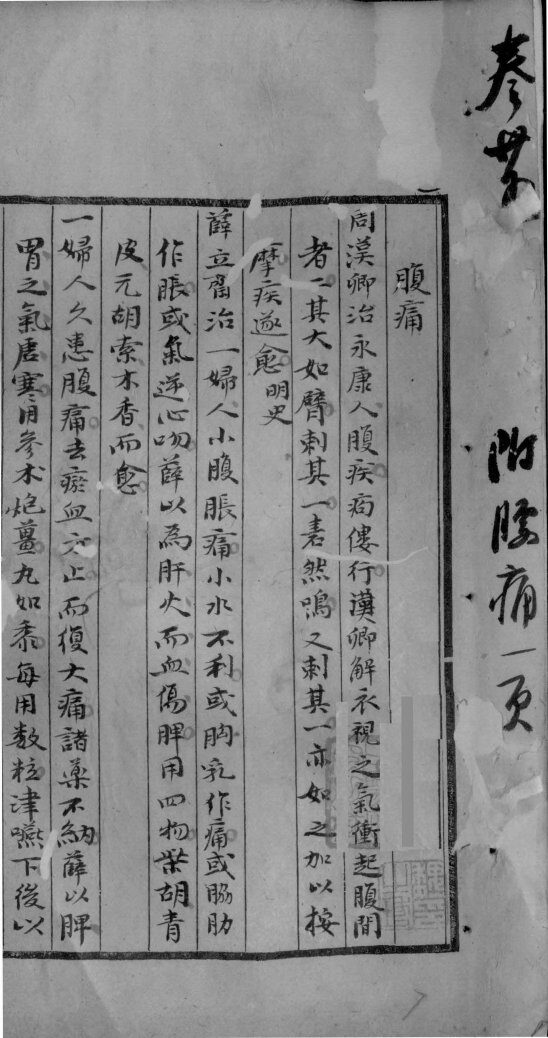 卷廿
附腰痛一页
腹痛
周漢卿治永康人腹疾病僂行漢卿解衣視之氣衝起腹間
者二其大如臂刺其一砉然鳴又刺其一亦如之加以按
摩疾遂愈明史
薛立齋治一婦人小腹脹痛小水不利或胸乳作痛或脇肋
作脹或氣逆心吻薛以為肝火而血傷脾用四物柴胡青
皮元胡索木香而愈
一婦人久患腹痛去瘀血方止而復大痛諸藥不納薛以脾
胃之氣虛寒用參术炮薑丸如黍每用数粒津嚥下後以